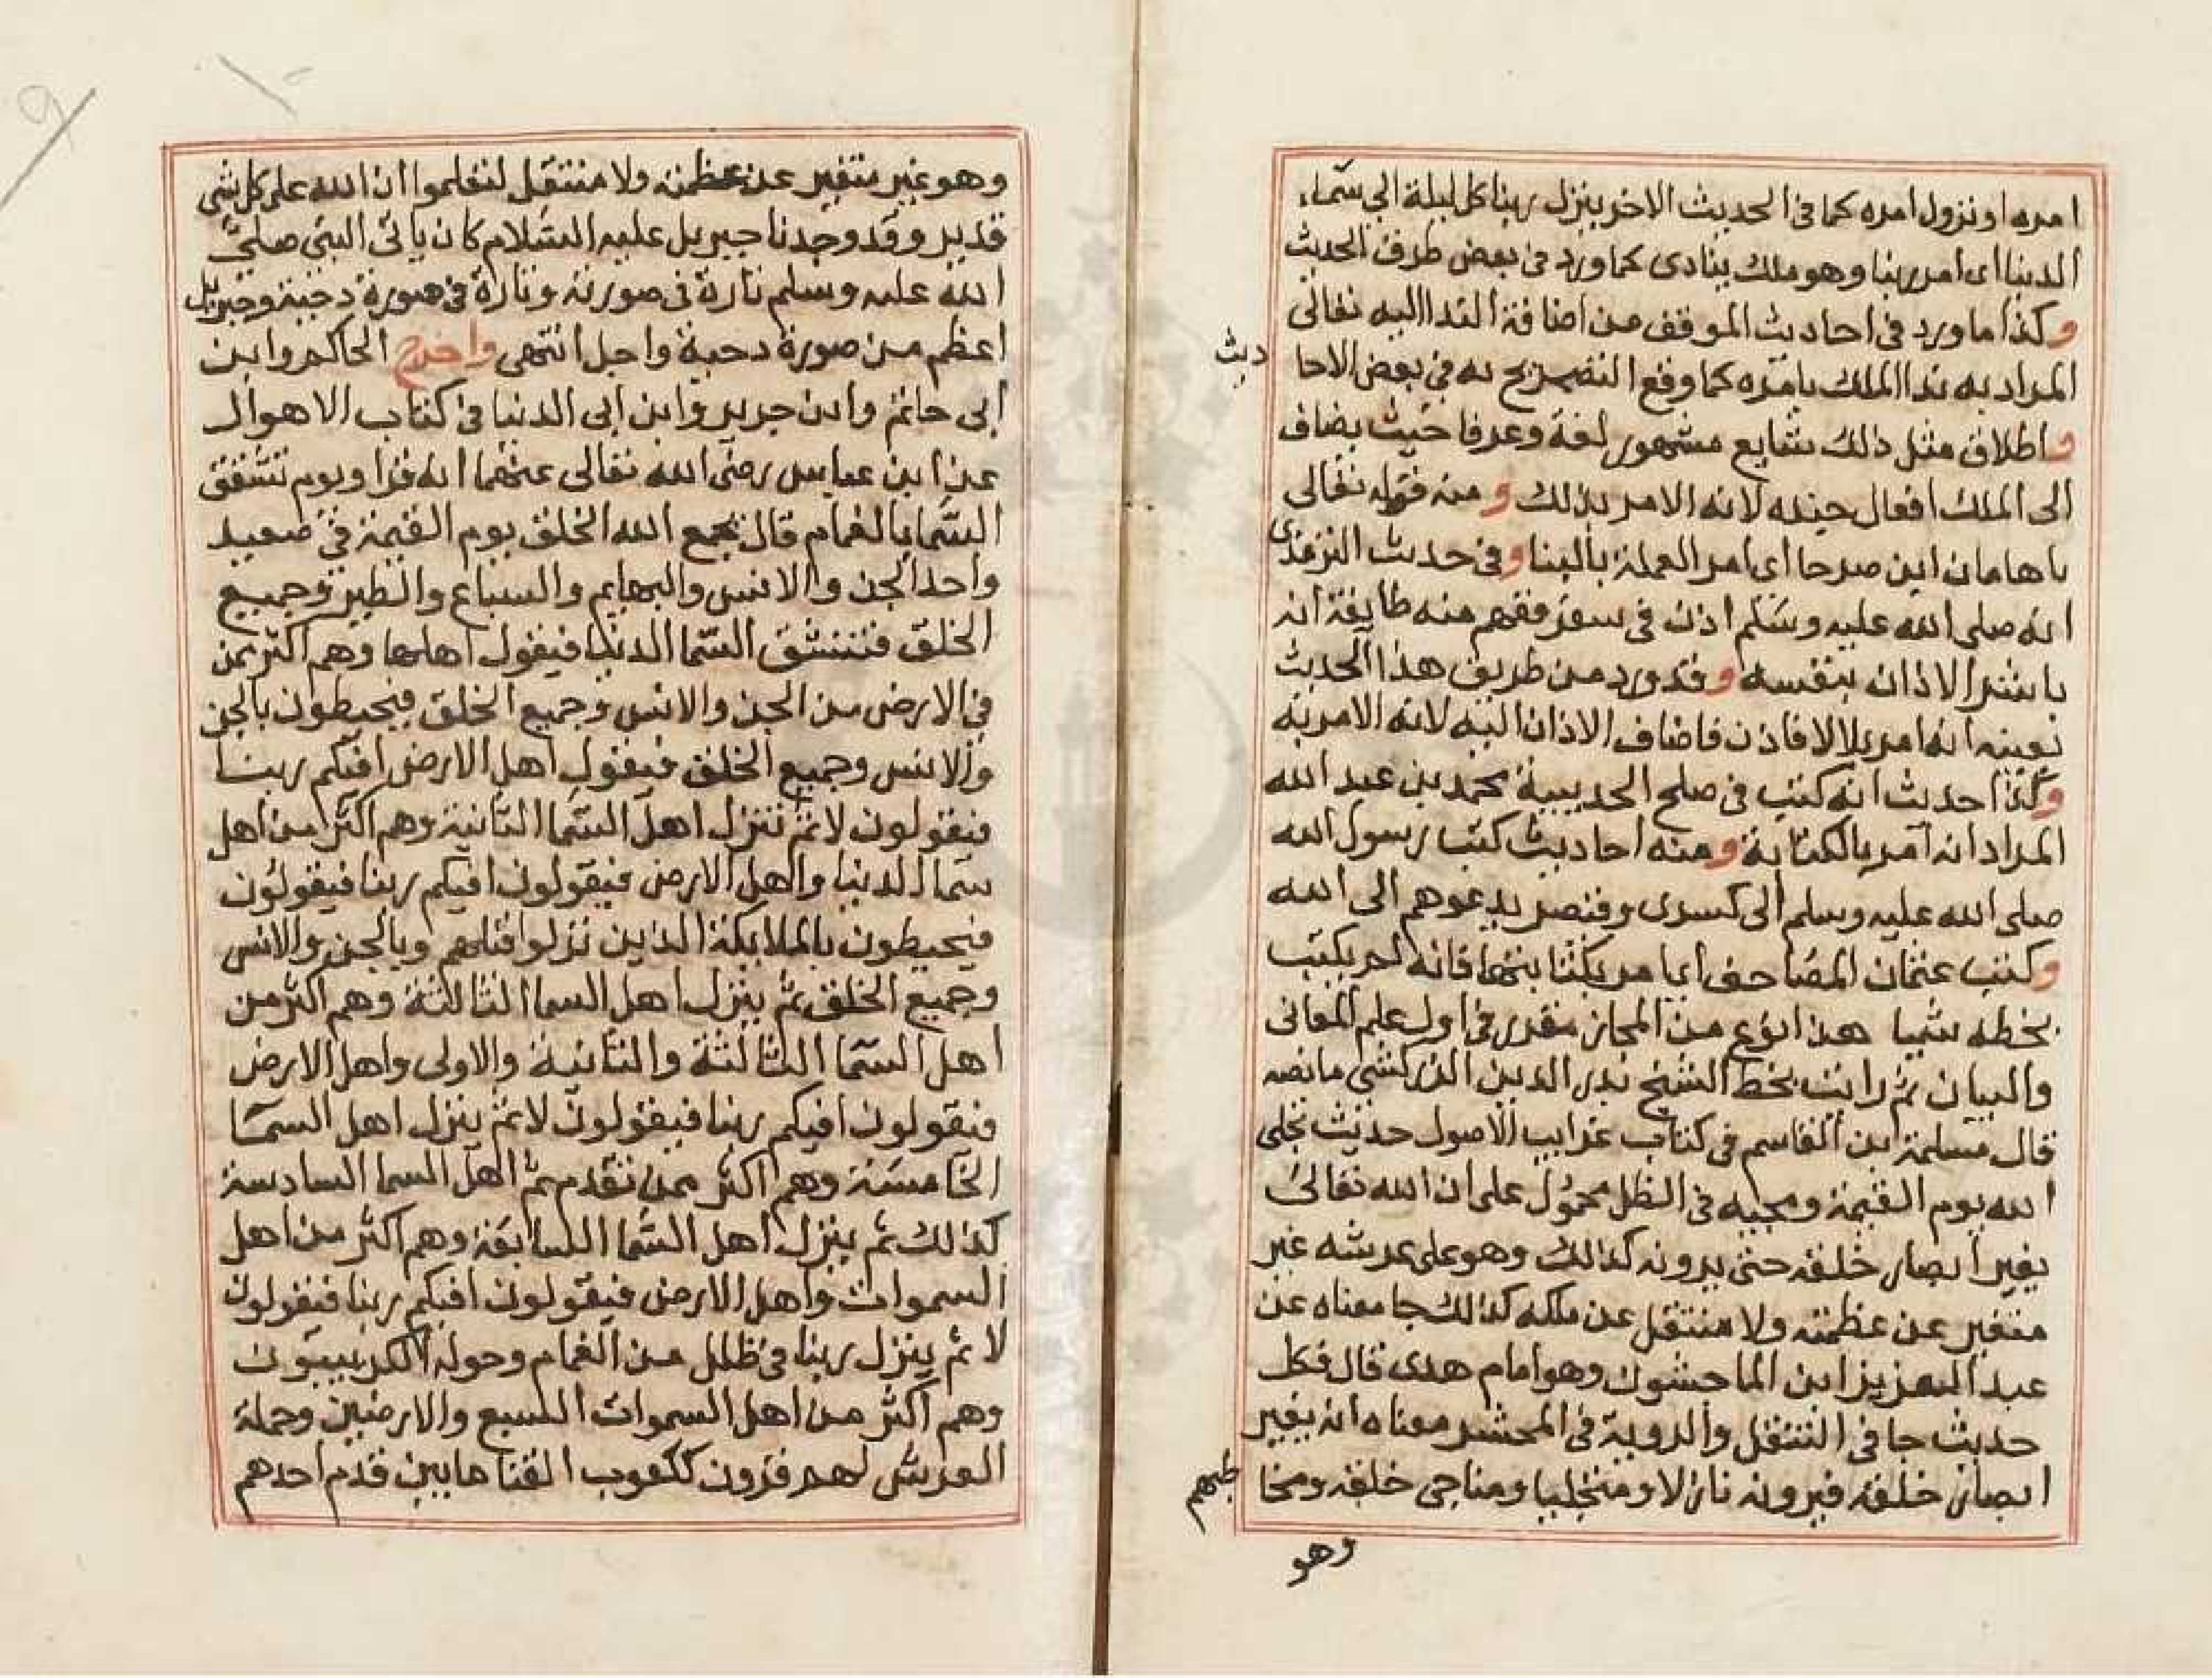 امره او نزول امره كما فى الحديث الاخر ينزل ربنا كل ليلة الى سماء
الدنيا اى امر ربنا وهو ملك ينادى كما ورد فى بعض طرق الحديث
وكذا ما ورد فى احاديث الموقف من اضافة الندا اليه تعالى
المراد به ندا الملك بامره كما وقع التصريح به فى بعض الاحا
ديث
واطلاق مثل ذلك شايع مشهور لغة وعرفا حيث يضاف
الى الملك افعال جنده لانه الامر بذلك ومنه قوله تعالى
ياهامان ابن صرحا اى امر العملة بالبنا وفى حديث الترمذى
انه صلى الله عليه وسلم اذن فى سفر ففهم منه طايفة انه
باشر الاذان بنفسه وقد ورد من طريق هذا الحديث
بعينه انه امر بلالا فاذن فاضاف الاذان اليه لانه الامر به
وكذا حديث انه كتب فى صلح الحديبية محمد بن عبد الله
المراد انه امر بالكتابة ومنه احاديث كتب رسول الله
صلى الله عليه وسلم الى كسرى وقيصر يدعوهم الى الله
وكتب عثمان المصاحف اى امر بكتابتها فانه لم يكتب
بخطه شيا هذا نوع من المجاز مقرر فى اول علم المعانى
والبيان ثم رايت بخط الشيخ بدر الدين الزركشى ما نصه
قال مسلمة ابن القاسم فى كتاب غرايب الاصول حديث تجلى
الله يوم القيمة ومجيه فى الظلل محمول على ان الله تعالى
يغير ابصار خلقه حتى يرونه كذالك وهو على عرشه غير
متغير عن عظمته ولا منتقل عن ملكه كذالك جا معناه عن
عبد العزيز ابن الماجشون وهو امام هدى قال فكل
حديث جا فى التنقل والروية فى المحشر معناه انه يغير
ابصار خلقه فيرونه نازلا ومتجليا ومناجى خلقه ومخا
طبهم
وهو
وهو غير متغير عن عظمته ولا منتقل لتعلموا ان الله على كل شى
قدير وقد وجدنا جبريل عليه السلام كان ياتى النبى صلى
الله عليه وسلم تارة فى صورته وتارة فى صورة دحية وجبريل
اعظم من صورة دحية واجل انتهى واخرج الحاكم وابن
ابى حاتم وابن جرير وابن ابى الدنيا فى كتاب الاهوال
عن ابن عباس رضى الله تعالى عنهما انه قرا ويوم تشقق
السما بالغمام قال يجمع الله الخلق يوم القيمة فى صعيد
واحد الجن والانس والبهايم والسباع والطير وجميع
الخلق فتنشق السما الدنيا فيقول اهلها وهم اكثر ممن
فى الارض من الجن والانس وجميع الخلق فيحيطون بالجن
والانس وجميع الخلق فيقول اهل الارض افيكم ربنا
فيقولون لا ثم تنزل اهل السما الثانية وهم اكثر من اهل
سما الدنيا واهل الارض فيقولون افيكم ربنا فيقولون
فيحيطون بالملايكة الذين نزلوا قبلهم وبالجن والانس
وجميع الخلق ثم ينزل اهل السما الثالثة وهم اكثر من
اهل السما الثالثة والثانية والاولى واهل الارض
فيقولون افيكم ربنا فيقولون لا ثم ينزل اهل السما
الخامسة وهم اكثر ممن تقدم ثم اهل السما السادسة
كذلك ثم ينزل اهل السما السابعة وهم اكثر من اهل
السموات واهل الارض فيقولون افيكم ربنا فيقولون
لا ثم ينزل ربنا فى ظلل من الغمام وحوله الكربيبون
وهم اكثر من اهل السموات السبع والارضين وحملة
العرش لهم قرون ككعوب القنا ما بين قدم احدهم